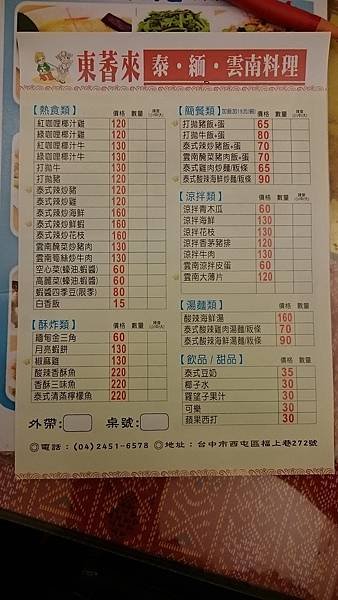 東蓍來 泰·緬·雲南料理
【熱食類】 價格 數量
紅咖哩椰汁雞 120
綠咖哩椰汁雞 120
紅咖哩椰汁牛 130
綠咖哩椰汁牛 130
打拋牛 130
打拋豬 120
泰式辣炒豬 120
泰式辣炒雞 120
泰式辣炒海鮮 160
泰式辣炒鮮蝦 160
泰式辣炒花枝 160
雲南醃菜炒豬肉 130
雲南筍絲炒牛肉 130
空心菜(蠔油.蝦醬) 60
高麗菜(蠔油.蝦醬) 60
蝦醬四季豆(限季) 60
白香飯 15
【酥炸類】 價格 數量
緬甸金三角 60
月亮蝦餅 130
椒麻雞 130
酸辣香酥魚 220
香酥三味魚 220
泰式清蒸檸檬魚 220
【簡餐類】 價格 數量
打拋豬飯+蛋 65
打拋牛飯+蛋 80
泰式辣炒豬飯+蛋 70
雲南醃菜豬肉飯+蛋 70
泰式雞肉炒麵/粄條 65
泰式酸辣海鮮炒麵/粄條 90
【涼拌類】 價格 數量
涼拌青木瓜 60
涼拌海鮮 130
涼拌花枝 130
涼拌香茅豬排 120
涼拌牛肉 130
雲南涼拌皮蛋 60
雲南大薄片 120
【湯麵類】 價格 數量
酸辣海鮮湯 160
泰式酸辣雞肉湯麵/粄條 70
泰式酸辣海鮮湯麵/粄條 90
【飲品/甜品】 價格 數量
泰式豆奶 35
椰子水 30
羅望子果汁 30
可樂 30
蘋果西打 30
外帶: 桌號:
◎電話:(04)2451-6578 ◎地址:台中市西屯區福上巷272號